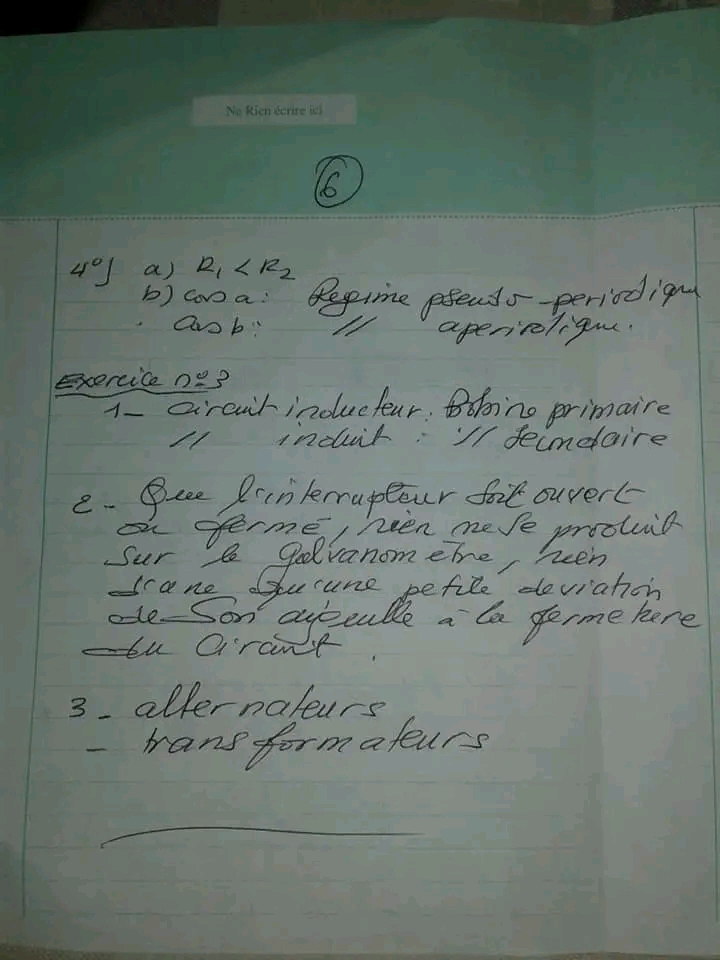 Ne Rien écrire ici
6
4°) a) R1 < R2
b) cas a : Regime pseudo-periodique
Cas b : // aperiodique.
Exercice n°3
1- Circuit inducteur : Bobine primaire
// induit : // Secondaire
2- Que l'interrupteur soit ouvert
ou fermé, rien ne se produit
sur le galvanomètre, rien
qu'une petite deviation
de son aiguille à la fermeture
du Circuit.
3- alternateurs
- transformateurs